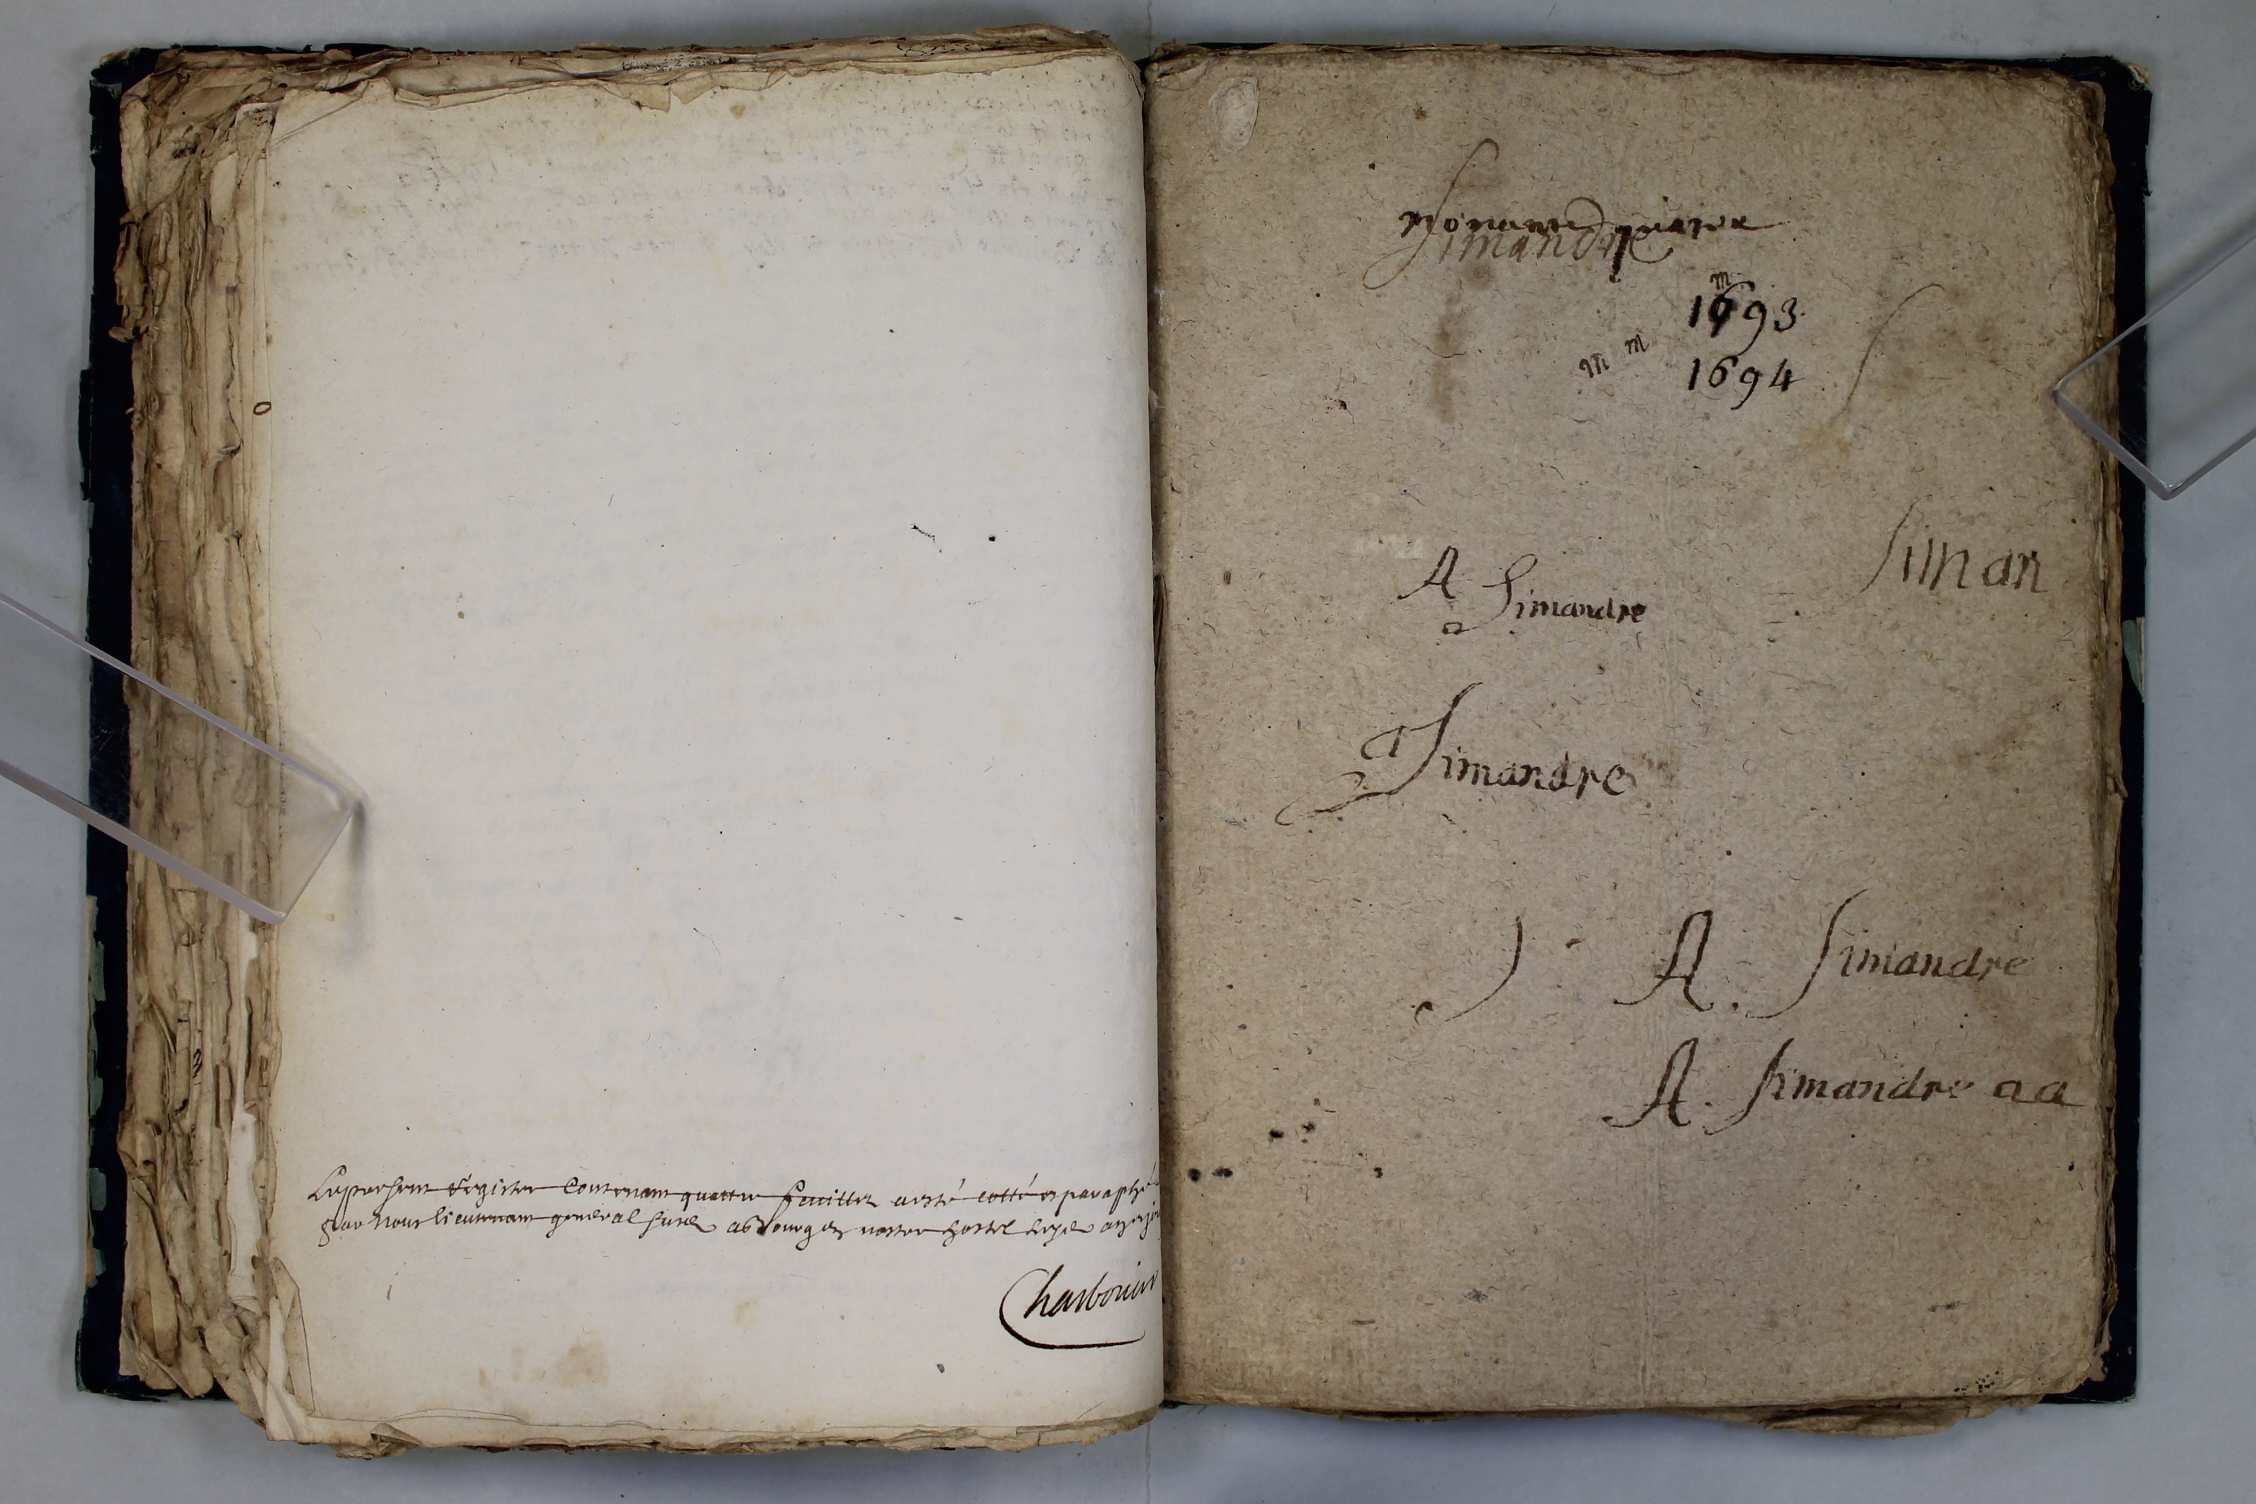 Le present Registre Contenant quattre feuillet a esté cotté et paraphé
par Nous lieutenant general susd a Bourg en nostre hostel
Charbonier
Simandre
m
1693
m m
1694
Siman
A
Simandre
a
Simandre
A. Simandre
A. Simandre a a